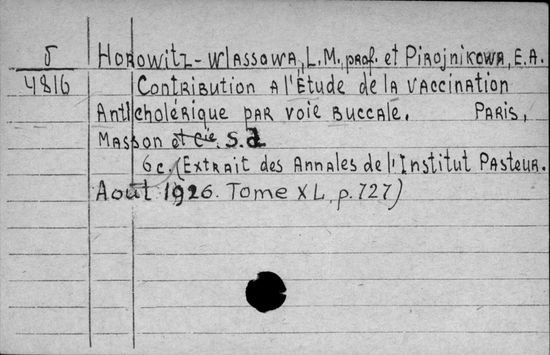 5 Horowitz-Wlassowa, L.M., prof. et Pirojnikowa, E.A.
4816 Contribution à l'Étude de la vaccination
Anticholérique par voie buccale. Paris,
Masson et Cie. S.d
6 c. (Extrait des Annales de l'Institut Pasteur.
Août 1926. Tome XL, p. 727)